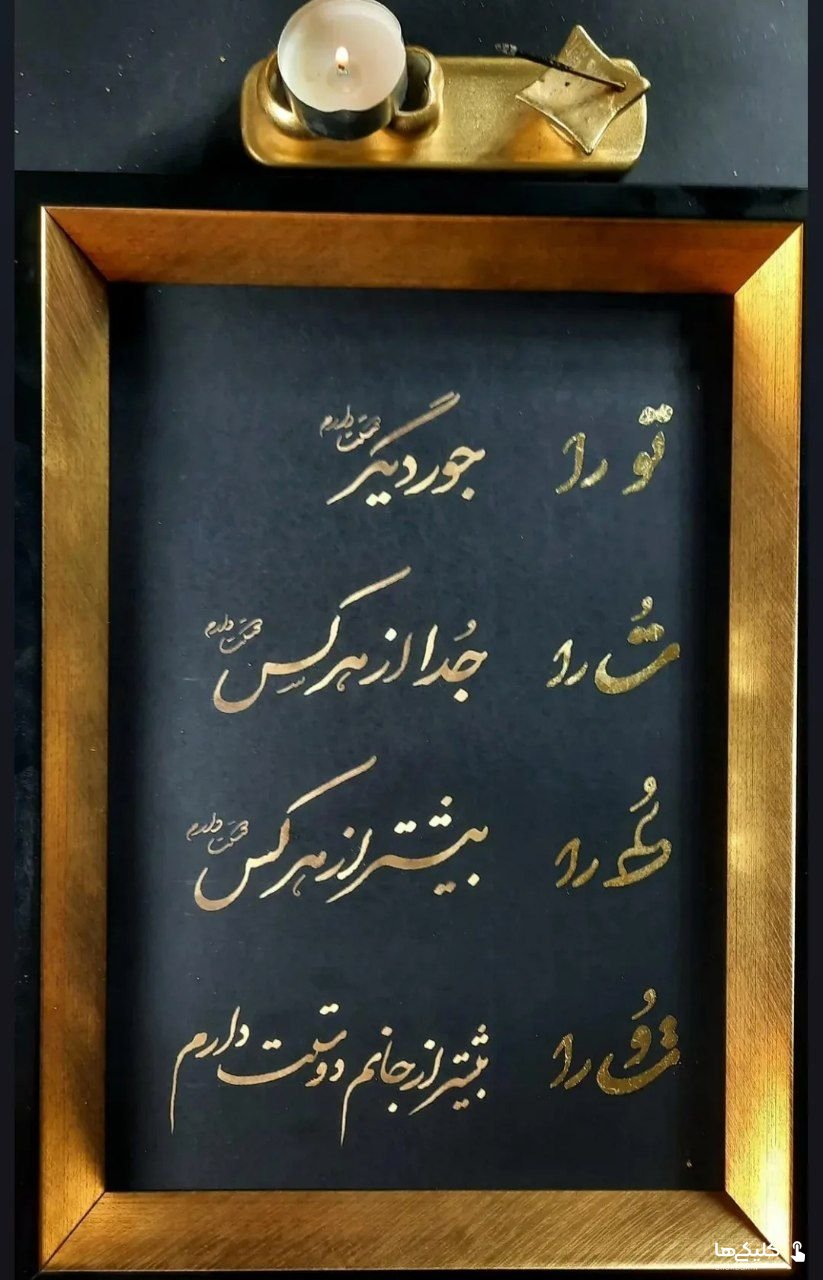 تو را جور دیگر دوستت دارم
تُ را جُدا از هر کس دوستت دارم
طُ را بیشتر از هر کس دوستت دارم
تؤ را بیشتر از جانم دوستت دارم
کلیکی‌ها